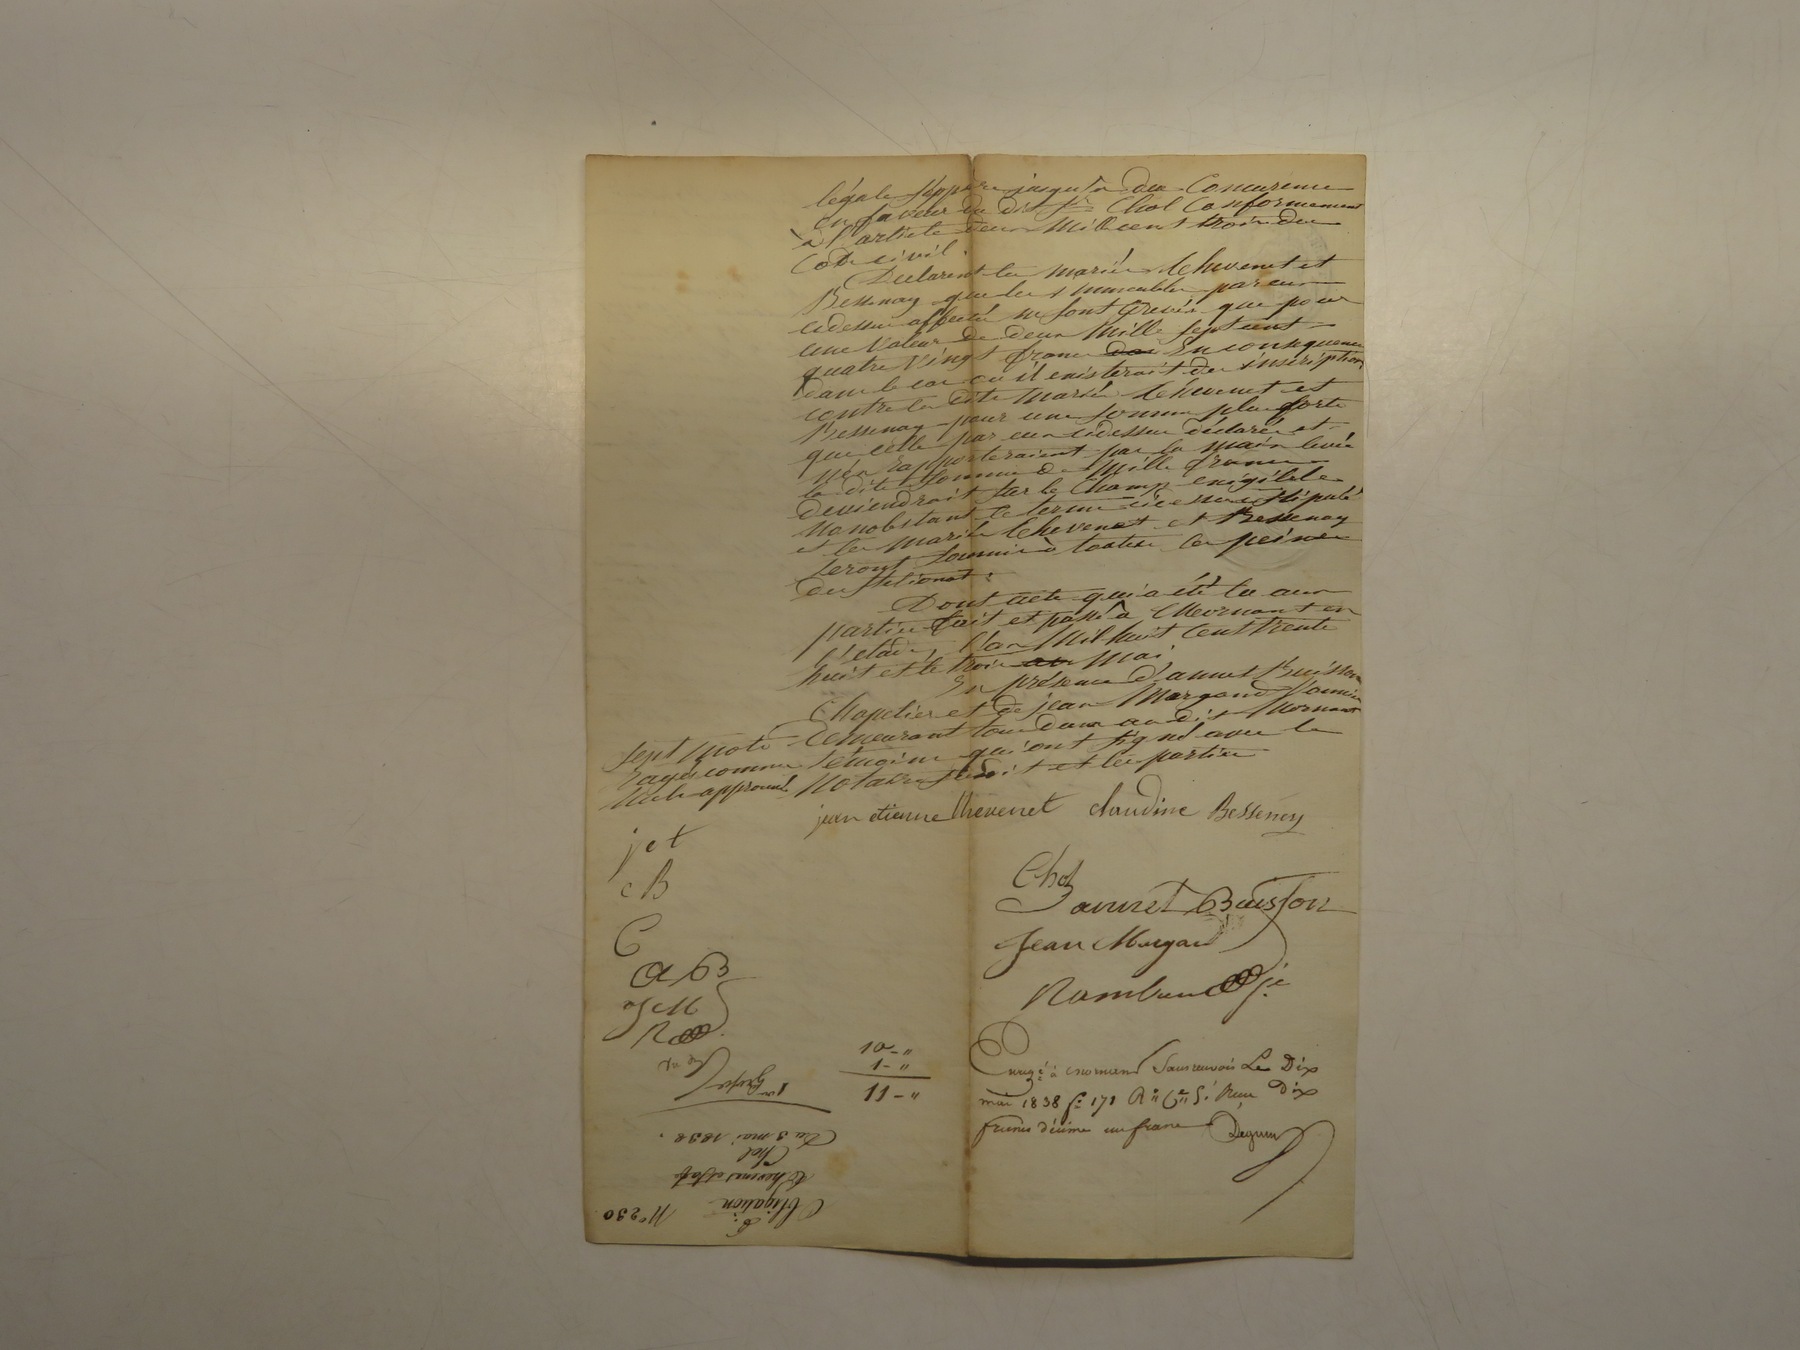 légale s'opère jusqu'à due Concurence
en faveur du dit sr Chol Conformement
à l'article deux Mille cent trois du
Code civil.
Declarent les mariés Thevenet et
Bessenay que les immeubles par eux
cidessus affectés ne sont Grevés que pour
une Valeur de deux Mille sept cent
quatre Vingt francs En consequence
dans le cas où il existerait des inscription
contre les dits mariés Thevenet et
Bessenay pour une somme plus forte
que celle par eux cidessus déclarée et
n'en rapporteraient pas la main levée
la dite somme de Mille francs
deviendrait sur le Champ exigible
Nonobstant le terme cidessus stipulé
et les mariés Thevenet et Bessenay
seront soumis à toutes les peines
du stelionat.
Dont acte qui a été lu aux
parties fait et passé à Mornant en
l'etude, l'an Mil huit Cent trente
huit et le trois Mai
En présence d'annet Buisson
Chapelier et de jean Margand
demeurant tous deux au dit Mornant
comme témoins qui ont signé avec le
Notaire et les parties
Sept mots
rayés
nuls approuvé
jean etienne thevenet claudine Bessenay
Chol
annet Buisson
Jean Margand
j e t
c B
C
A B
J M
R
10 - "
1 - "
11 - "
Enregé à mornant Sans renvois Le Dix
mai 1838 fo 171 Ro Reçu Dix
francs décime un franc
1re Grosse
Du 3 mai 1838.
Chol
Thevenet et
Obligation
No 230